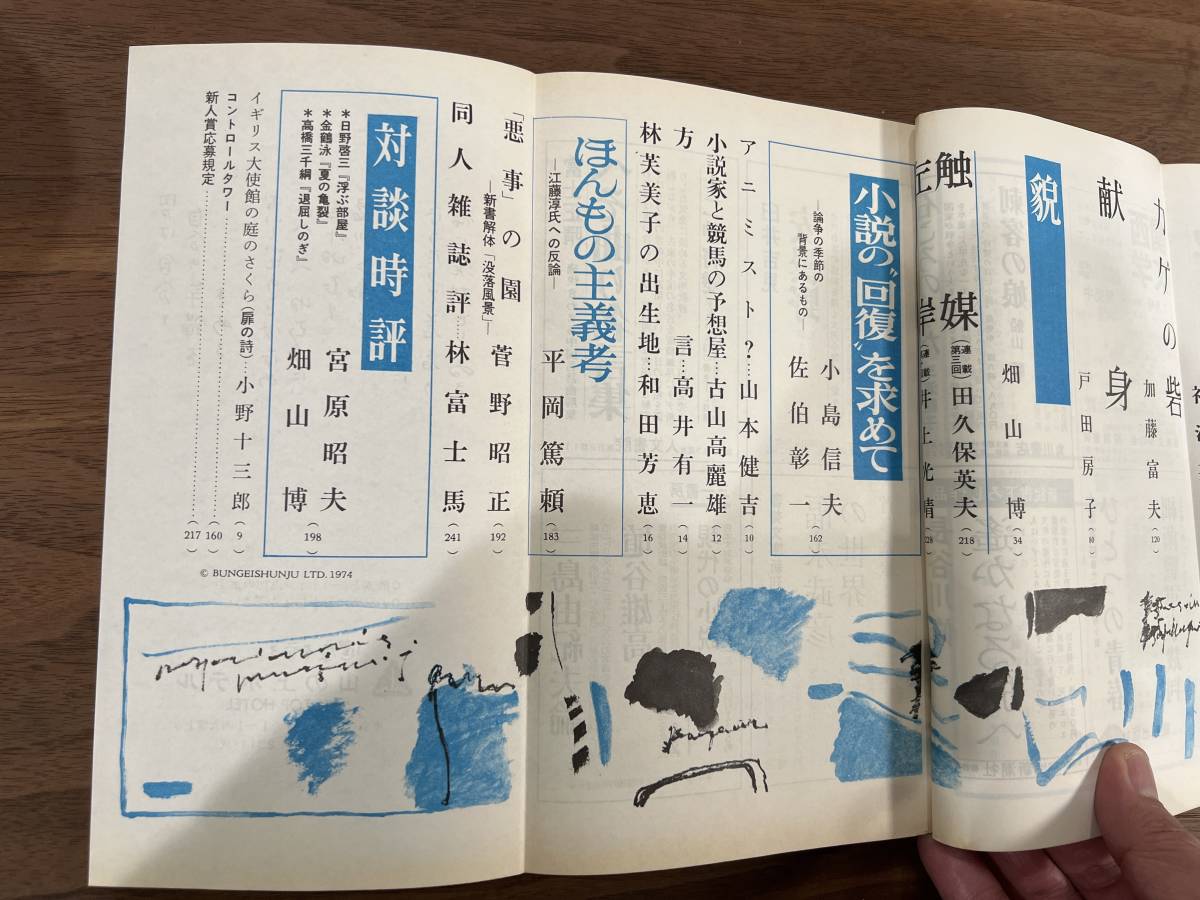 カゲの砦
加藤富夫
(120)
献身
戸田房子
(80)
貌
畑山博
(34)
触媒
(連載第三回)
田久保英夫
218
岸
井上光晴
228
小説の“回復”を求めて
―論争の季節の
背景にあるもの―
小島信夫
佐伯彰一
(162)
アニミスト?…山本健吉(10)
小説家と競馬の予想屋…古山高麗雄(12)
方言…高井有一(14)
林芙美子の出生地…和田芳恵(16)
ほんもの主義考
―江藤淳氏への反論―
平岡篤頼
(183)
「悪事」の園
―新書解体「没落風景」―
菅野昭正
(192)
同人雑誌評…林富士馬(241)
対談時評
*日野啓三『浮ぶ部屋』
*金鶴泳『夏の亀裂』
*高橋三千綱『退屈しのぎ』
宮原昭夫
畑山博
(198)
イギリス大使館の庭のさくら(扉の詩)…小野十三郎(9)
コントロールタワー………(160)
新人賞応募規定………(217)
© BUNGEISHUNJU LTD. 1974